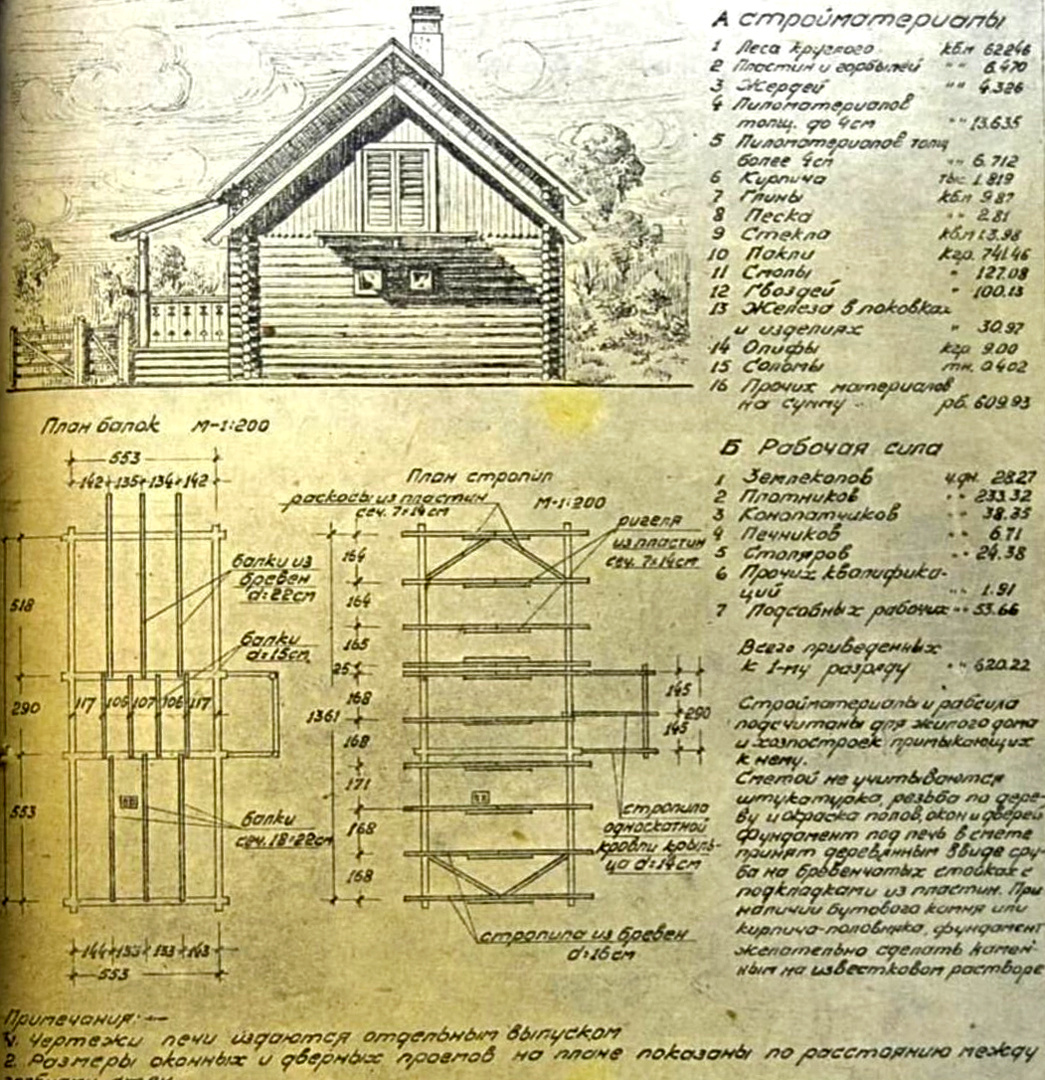 А стройматериалы
1 Леса круглого кбм 62246
2 Пластин и горбылей " " 6.470
3 Жердей " " 4.326
4 Пиломатериалов
толщ. до 4см " " 13.635
5 Пиломатериалов толщ
более 4см " " 6.712
6 Кирпича тыс 1.819
7 Глины кбм 9.87
8 Песка " " 2.81
9 Стекла кбм 13.98
10 Пакли кгр. 741.46
11 Смолы " 127.08
12 Гвоздей " 100.13
13 Железа в поковках
и изделиях " 30.97
14 Олифы кгр 9.00
15 Соломы тн. 0402
16 Прочих материалов
на сумму рб. 609.93
Б Рабочая сила
1 Землекопов ч.дн. 28.27
2 Плотников " " 233.32
3 Конопатчиков " " 38.35
4 Печников " " 6.71
5 Столяров " " 24.38
6 Прочих квалифика-
ций " 1.91
7 Подсобных рабочих " " 53.66
Всего приведенных
к 1-му разряду " " 620.22
Стройматериалы и рабсила
подсчитаны для жилого дома
и хозпостроек примыкающих
к нему.
Сметой не учитываются
штукатурка, резьба по дере-
ву и окраска полов, окон и дверей
Фундамент под печь в смете
принят деревянным ввиде сру-
ба на бревенчатых стойках с
подкладками из пластин. При
наличии бутового камня или
кирпича-половняка, фундамент
желательно сделать камен-
ным на известковом растворе
План балок М-1:200
553
142 135 134 142
518
290
553
балки из
бревен
d=22см
балки
d=15см
117 106 107 106 117
балки
сеч. 18=22см
144 133 133 143
553
План стропил
М-1:200
раскосы из пластин
сеч. 7=14см
ригеля
из пластин
сеч. 7=14см
164
164
165
25
168
1361
168
171
168
168
145
290
145
стропила
односкатной
кровли крыль-
ца d=14см
стропила из бревен
d=16см
Примечания:
1. Чертежи печи издаются отдельным выпуском
2. Размеры оконных и дверных проемов на плане показаны по расстоянию между